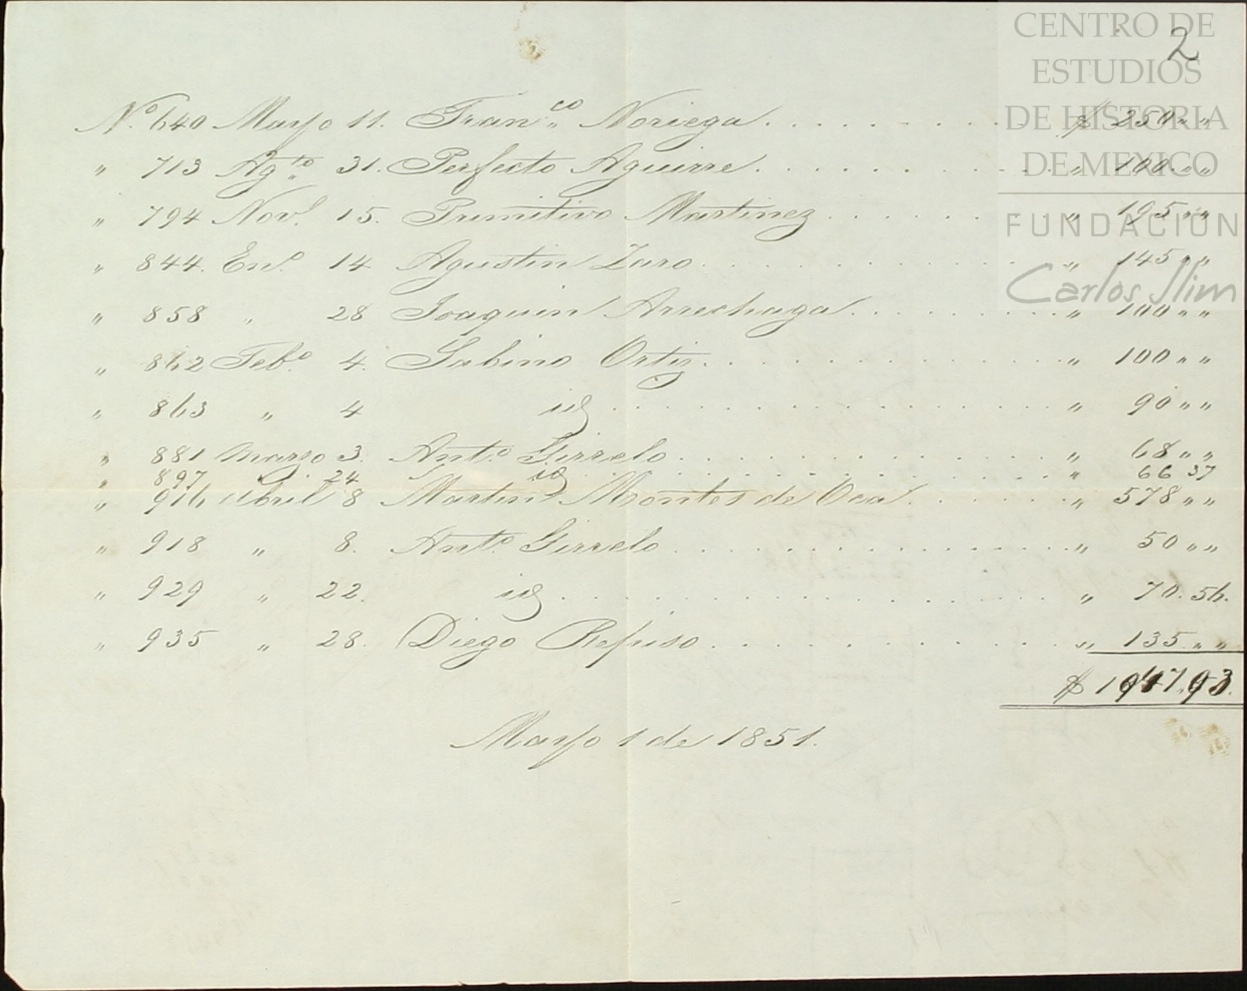 CENTRO DE
ESTUDIOS
DE HISTORIA
DE MEXICO
FUNDACIÓN
Carlos Slim
2
N.º 640 Mayo 11. Fran.co Noriega. $ 250 „ „
„ 713 Ag.to 31. Perfecto Aguirre. „ 100 „ „
„ 794 Nov.e 15. Primitivo Martinez „ 195 „ „
„ 844. En.o 14 Agustin Zuro „ 145 „ „
„ 858 „ 28 Joaquin Arrechaga „ 100 „ „
„ 862 Feb.o 4. Gabino Ortiz. „ 100 „ „
„ 863 „ 4 id „ 90 „ „
„ 881 Marzo 3. Ant.o Girrelo „ 68 „ „
„ 897 „ 24 id „ 66 37
„ 916 Abril 8 Martin Montes de Oca „ 578 „ „
„ 918 „ 8. Ant.o Girrelo „ 50 „ „
„ 929 „ 22. id „ 70. 56.
„ 935 „ 28. Diego Refuso „ 135 „ „
$ 1947,93.
Mayo 1 de 1851.